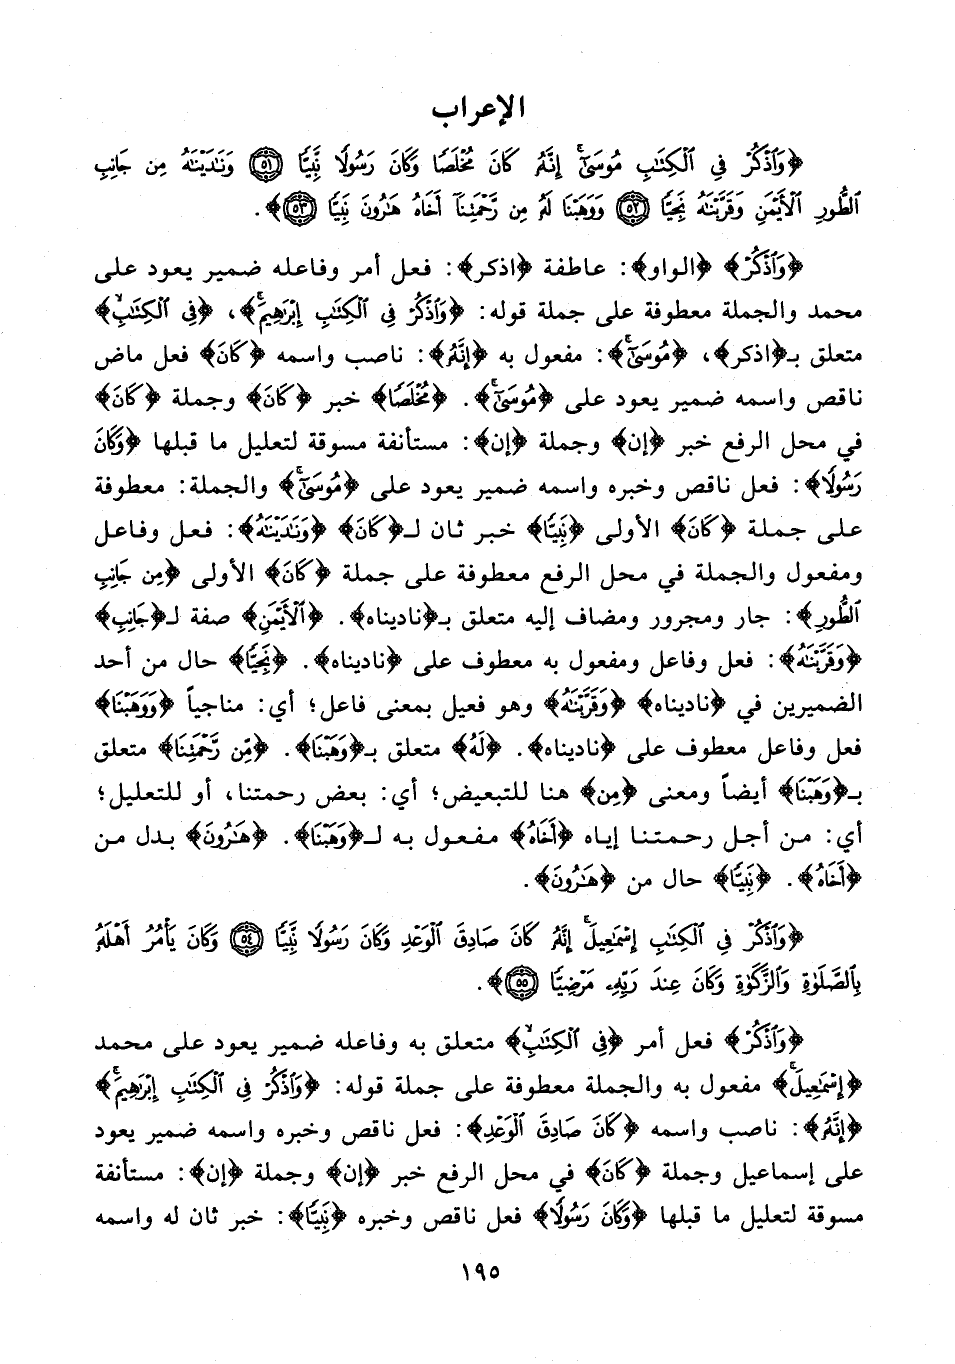 الإعراب
﴿وَٱذْكُرْ فِى ٱلْكِتَٰبِ مُوسَىٰٓ ۚ إِنَّهُۥ كَانَ مُخْلَصًا وَكَانَ رَسُولًا نَّبِيًّا ٥١ وَنَٰدَيْنَٰهُ مِن جَانِبِ
ٱلطُّورِ ٱلْأَيْمَنِ وَقَرَّبْنَٰهُ نَجِيًّا ٥٢ وَوَهَبْنَا لَهُۥ مِن رَّحْمَتِنَآ أَخَاهُ هَٰرُونَ نَبِيًّا ٥٣﴾.
﴿وَٱذْكُرْ﴾ ﴿الواو﴾: عاطفة ﴿اذكر﴾: فعل أمر وفاعله ضمير يعود على
محمد والجملة معطوفة على جملة قوله: ﴿وَٱذْكُرْ فِى ٱلْكِتَٰبِ إِبْرَٰهِيمَ ۚ﴾، ﴿فِى ٱلْكِتَٰبِ ۙ﴾
متعلق بـ﴿اذكر﴾، ﴿مُوسَىٰٓ ۚ﴾: مفعول به ﴿إِنَّهُۥ﴾: ناصب واسمه ﴿كَانَ﴾ فعل ماض
ناقص واسمه ضمير يعود على ﴿مُوسَىٰٓ ۚ﴾. ﴿مُخْلَصًا﴾ خبر ﴿كَانَ﴾ وجملة ﴿كَانَ﴾
في محل الرفع خبر ﴿إن﴾ وجملة ﴿إن﴾: مستأنفة مسوقة لتعليل ما قبلها ﴿وَكَانَ
رَسُولًا﴾: فعل ناقص وخبره واسمه ضمير يعود على ﴿مُوسَىٰٓ ۚ﴾ والجملة: معطوفة
على جملة ﴿كَانَ﴾ الأولى ﴿نَبِيًّا﴾ خبر ثان لـ﴿كَانَ﴾ ﴿وَنَٰدَيْنَٰهُ﴾: فعل وفاعل
ومفعول والجملة في محل الرفع معطوفة على جملة ﴿كَانَ﴾ الأولى ﴿مِن جَانِبِ
ٱلطُّورِ﴾: جار ومجرور ومضاف إليه متعلق بـ﴿ناديناه﴾. ﴿ٱلْأَيْمَنِ﴾ صفة لـ﴿جَانِبِ﴾
﴿وَقَرَّبْنَٰهُ﴾: فعل وفاعل ومفعول به معطوف على ﴿ناديناه﴾. ﴿نَجِيًّا﴾ حال من أحد
الضميرين في ﴿ناديناه﴾ ﴿وَقَرَّبْنَٰهُ﴾ وهو فعيل بمعنى فاعل؛ أي: مناجياً ﴿وَوَهَبْنَا﴾
فعل وفاعل معطوف على ﴿ناديناه﴾. ﴿لَهُ﴾ متعلق بـ﴿وَهَبْنَا﴾. ﴿مِّن رَّحْمَتِنَا﴾ متعلق
بـ﴿وَهَبْنَا﴾ أيضاً ومعنى ﴿مِن﴾ هنا للتبعيض؛ أي: بعض رحمتنا، أو للتعليل؛
أي: من أجل رحمتنا إياه ﴿أَخَاهُ﴾ مفعول به لـ﴿وَهَبْنَا﴾. ﴿هَٰرُونَ﴾ بدل من
﴿أَخَاهُ﴾. ﴿نَبِيًّا﴾ حال من ﴿هَٰرُونَ﴾.
﴿وَٱذْكُرْ فِى ٱلْكِتَٰبِ إِسْمَٰعِيلَ ۚ إِنَّهُۥ كَانَ صَادِقَ ٱلْوَعْدِ وَكَانَ رَسُولًا نَّبِيًّا ٥٤ وَكَانَ يَأْمُرُ أَهْلَهُۥ
بِٱلصَّلَوٰةِ وَٱلزَّكَوٰةِ وَكَانَ عِندَ رَبِّهِۦ مَرْضِيًّا ٥٥﴾.
﴿وَٱذْكُرْ﴾ فعل أمر ﴿فِى ٱلْكِتَٰبِ ۙ﴾ متعلق به وفاعله ضمير يعود على محمد
﴿إِسْمَٰعِيلَ ۚ﴾ مفعول به والجملة معطوفة على جملة قوله: ﴿وَٱذْكُرْ فِى ٱلْكِتَٰبِ إِبْرَٰهِيمَ ۚ﴾
﴿إِنَّهُۥ﴾: ناصب واسمه ﴿كَانَ صَادِقَ ٱلْوَعْدِ﴾: فعل ناقص وخبره واسمه ضمير يعود
على إسماعيل وجملة ﴿كَانَ﴾ في محل الرفع خبر ﴿إن﴾ وجملة ﴿إن﴾: مستأنفة
مسوقة لتعليل ما قبلها ﴿وَكَانَ رَسُولًا﴾ فعل ناقص وخبره ﴿نَبِيًّا﴾: خبر ثان له واسمه
١٩٥